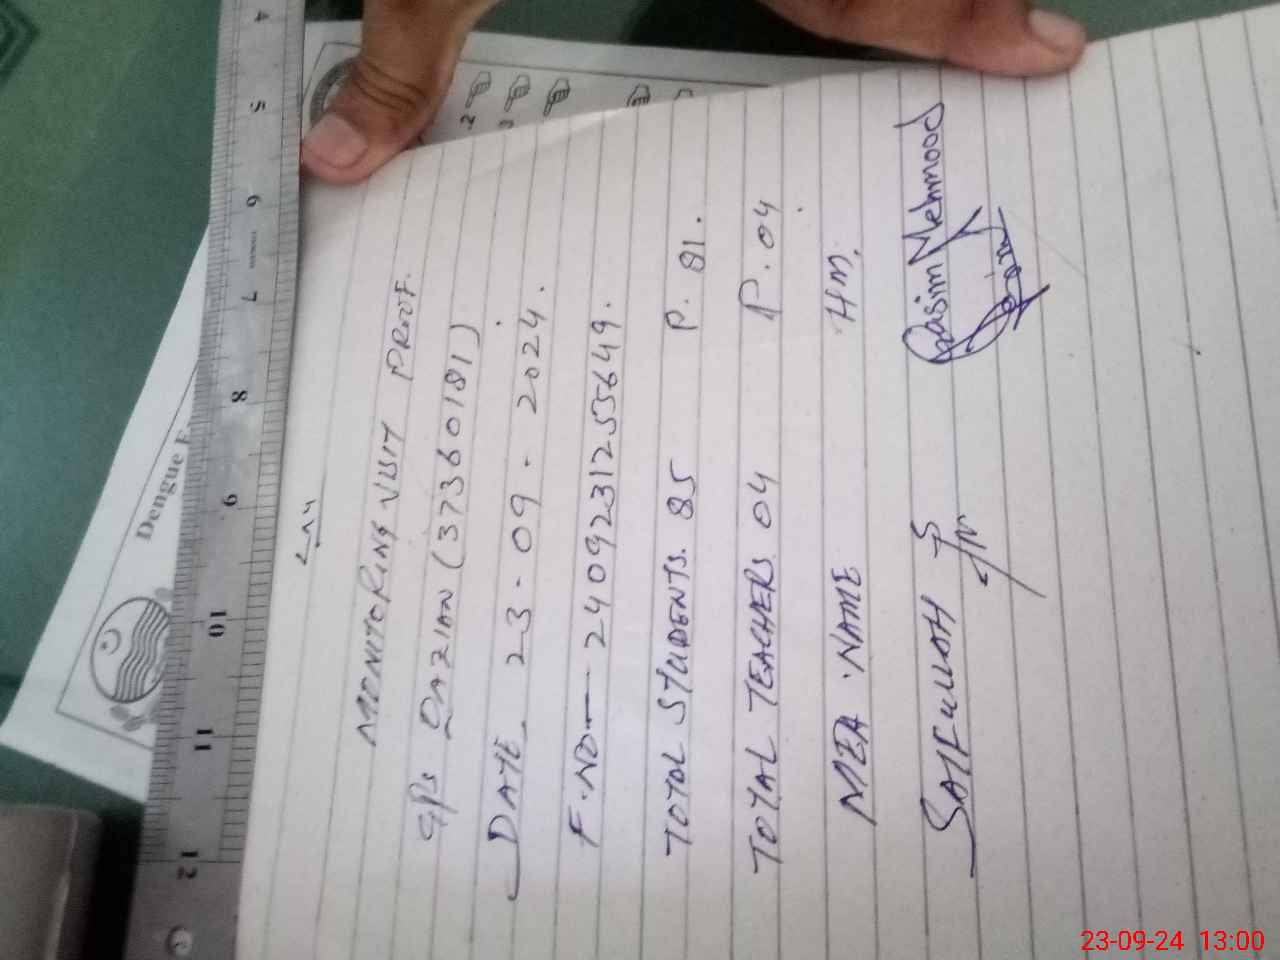 MONITORING VISIT PROOF.
GPS DAZIAN (37360181)
DATE. 23-09-2024.
F.NO — 24092312555649.
TOTAL STUDENTS. 85 P. 81.
TOTAL TEACHERS 04 P. 04
MEA NAME HM.
SAIFULLAH Qasim Mehmood
Dengue
4 5 6 7 8 9 10 11 12
23-09-24 13:00